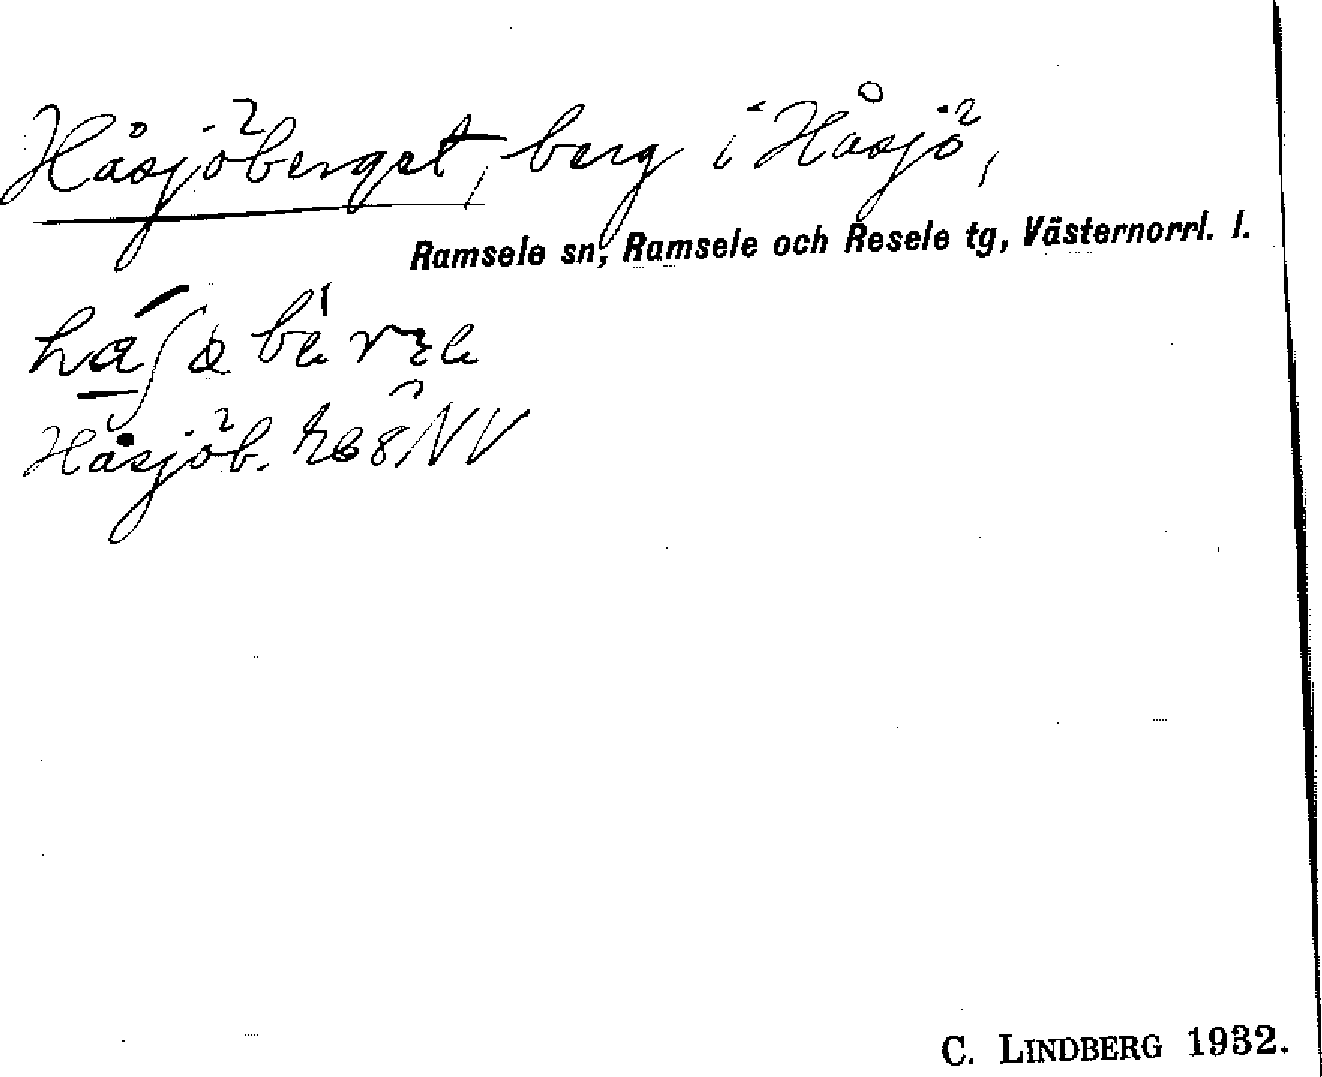 Håsjöberget, berg i Håsjö,
Ramsele sn, Ramsele och Resele tg, Västernorrl. l.
Håsjöb. NV
C. LINDBERG 1932.